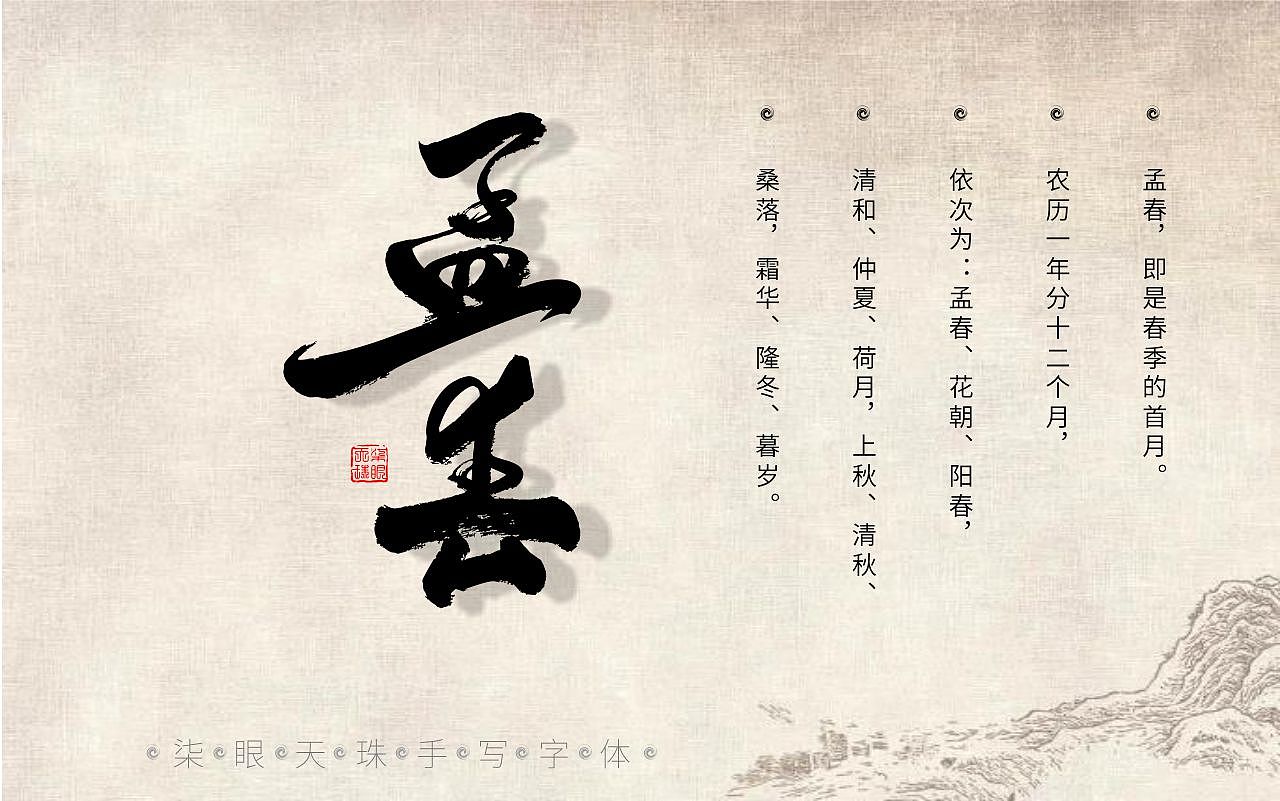 孟春，即是春季的首月。
农历一年分十二个月，
依次为：孟春、花朝、阳春，
清和、仲夏、荷月，上秋、清秋、
桑落，霜华、隆冬、暮岁。
孟春
柒眼天珠
柒眼天珠手写字体